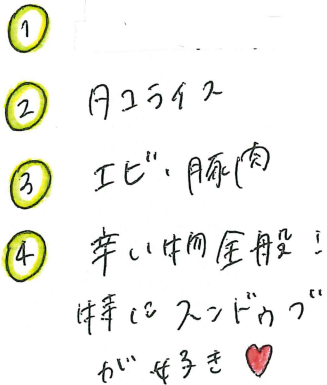 ①
② タコライス
③ エビ・豚肉
④ 辛い物全般!
特にスンドゥブ
が好き♥